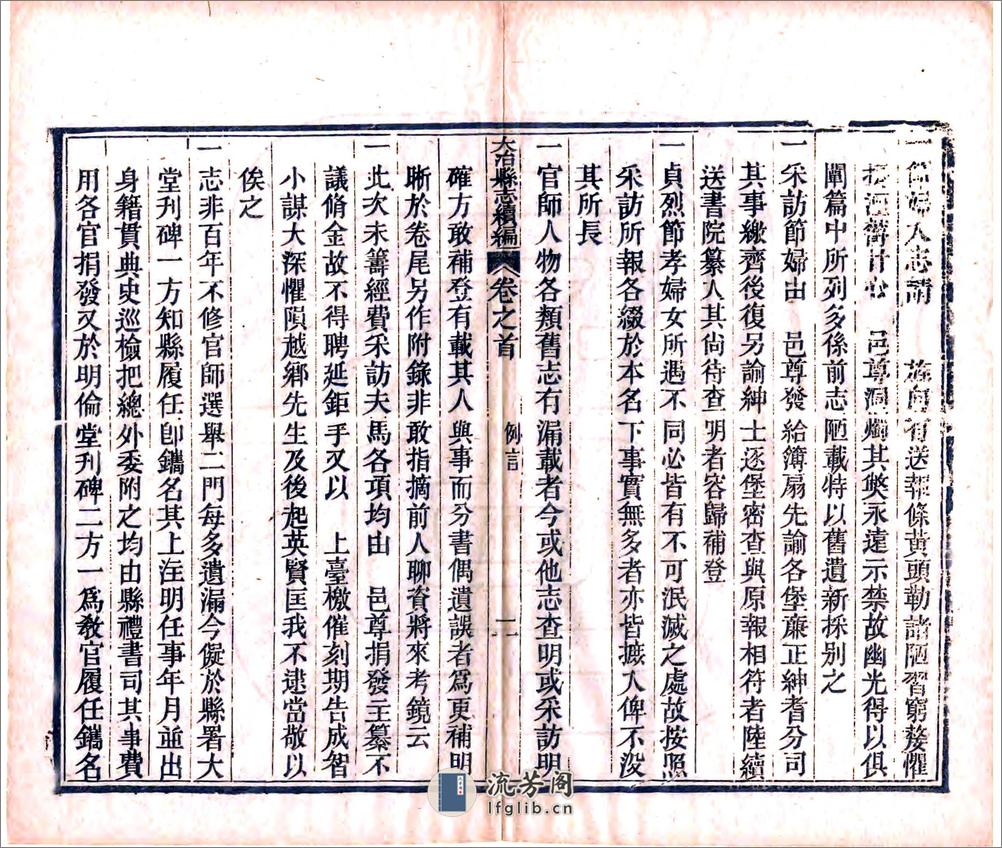 一節婦入志請　　旌舊有送報條黃頭勒諸陋習窮嫠懼
擾湮鬱甘心　邑尊洞燭其獘永遠示禁故幽光得以俱
闡篇中所列多係前志陋載特以舊遺新採别之
一采訪節婦由　邑尊發給簿扇先諭各堡廉正紳耆分司
其事繳齊後復另諭紳士逐堡密查與原報相符者陸續
送書院纂人其尚待查明者容歸補登
一貞烈節孝婦女所遇不同必皆有不可泯滅之處故按照
采訪所報各綴於本名下事實無多者亦皆摭入俾不没
其所長
一官師人物各類舊志有漏載者今或他志查明或采訪明
大冶縣志續編　卷之首　例言　二
確方敢補登有載其人與事而分書偶遺誤者爲更補明
晰於卷尾另作附錄非敢指摘前人聊資將來考鏡云
一此次未籌經費采訪夫馬各項均由　邑尊捐發主纂不
議脩金故不得聘延鉅手又以　上臺檄催刻期告成智
小謀大深懼隕越鄉先生及後起英賢匡我不逮當敬以
俟之
一志非百年不修官師選舉二門每多遺漏今儗於縣署大
堂刊碑一方知縣履任卽鐫名其上注明任事年月並出
身籍貫典史巡檢把總外委附之均由縣禮書司其事費
用各官捐發又於明倫堂刊碑二方一爲敎官履任鐫名
流芳阁
lfglib.cn